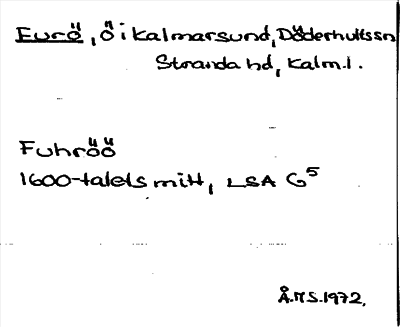 Furö, ö i Kalmarsund, Döderhultssn
Stranda hd, Kalm.l.
Fuhröö
1600-talets mitt, LSA G5
Å.M S. 1972,